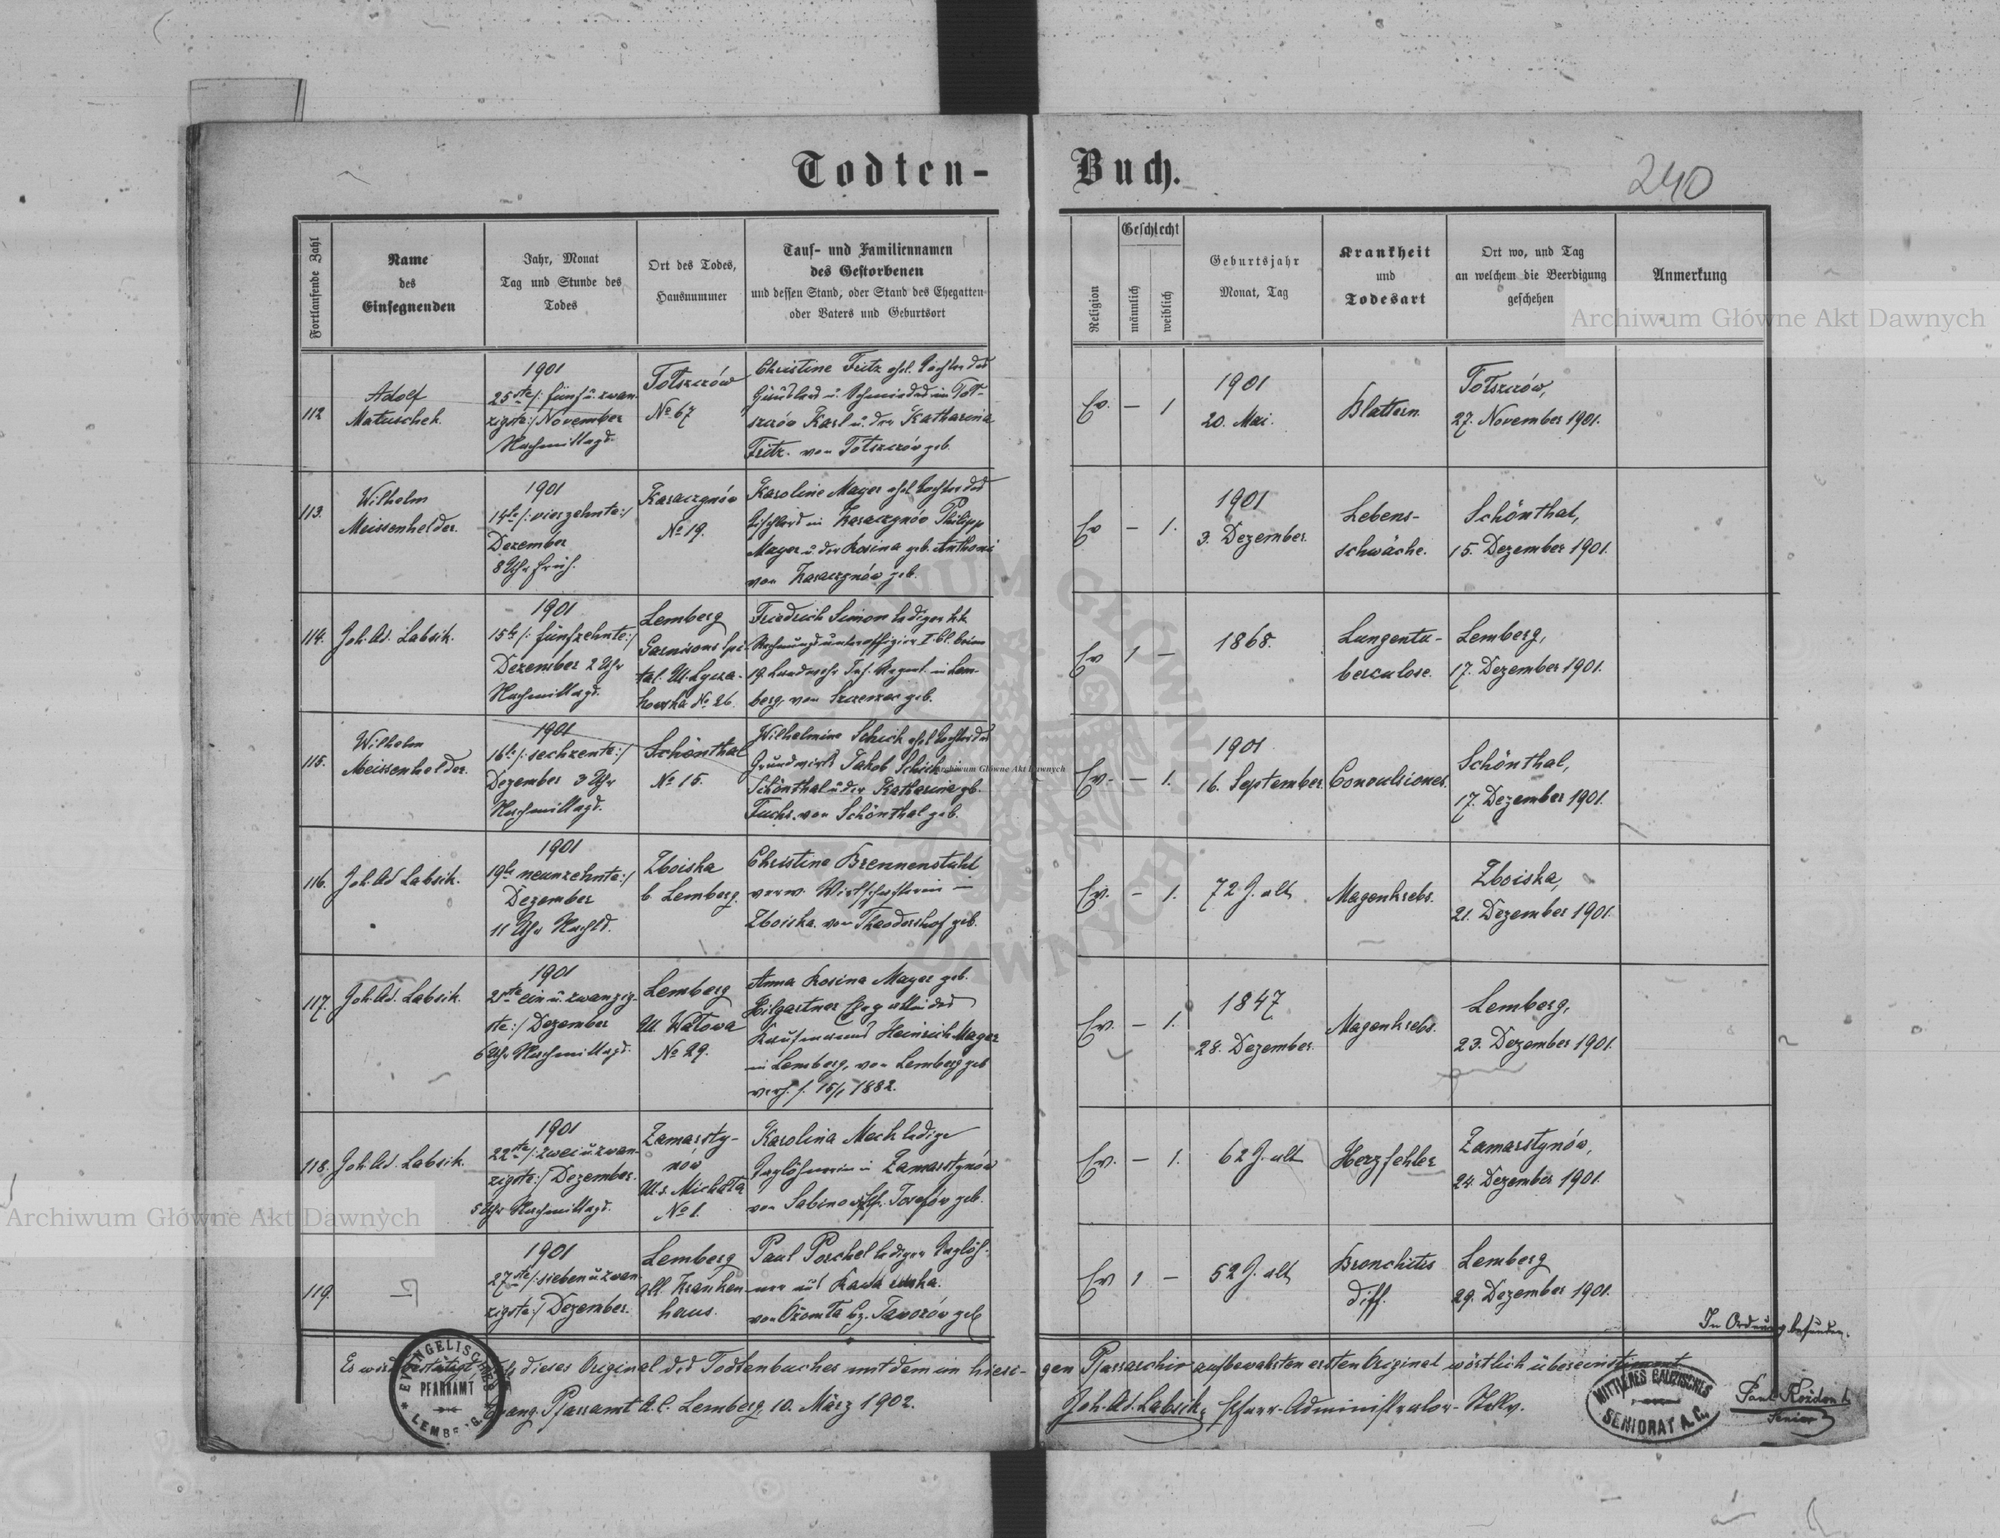 Todten-
Buch.
240
Fortlaufende Zahl
Name
des
Einsegnenden
Jahr, Monat
Tag und Stunde des
Todes
Ort des Todes,
Hausnummer
Tauf- und Familiennamen
des Gestorbenen
und dessen Stand, oder Stand des Ehegatten
oder Vaters und Geburtsort
Religion
Geschlecht
männlich
weiblich
Geburtsjahr
Monat, Tag
Krankheit
und
Todesart
Ort wo, und Tag
an welchem die Beerdigung
geschehen
Anmerkung
Archiwum Główne Akt Dawnych
112
Adolf
Matuschek.
1901
25ste/: fünf u. zwan-
zigste:/ November
Nachmittags.
Totszczów
No 67
Christine Fritz ehel. Tochter des
u. Schmiedes in Tot-
szczów Karl u. der Katharina
Fritz. von Totszczów geb.
Ev. — 1
1901
20. Mai.
Blattern
Totszczów,
27. November 1901.
113.
Wilhelm
Meissenhelder.
1901
14te/: vierzehnte:/
Dezember
8 Uhr früh.
Kasaczynów
No 19.
Karoline Mayer ehel. Tochter des
in Kasaczynów Philipp
Mayer u. der Rosina geb. Anthoni
von Kasaczynów geb.
Ev — 1.
1901
3. Dezember.
Lebens-
schwäche.
Schönthal,
15. Dezember 1901.
114.
Joh. Ad. Labsik.
1901
15te/: fünfzehnte:/
Dezember 2 Uhr
Nachmittags.
Lemberg
Garnisons Spi-
tal. Ul. Lycza-
kowska No 26.
Friedrich Simon lediger k.k.
Rechnungsunteroffizier I Kl. beim
19. Landwehr Inf. Regmt. in Lem-
berg, von Szczerzec geb.
Ev 1 —
1868.
Lungentu-
berculose.
Lemberg,
17. Dezember 1901.
115.
Wilhelm
Meissenhelder.
1901
16te/: sechzente:/
Dezember 3 Uhr
Nachmittags.
Schönthal
No 15.
Wilhelmine Schick ehel. Tochter des
Grundwirts Jakob Schick
Schönthal u. der Katharina geb.
Fuchs. von Schönthal geb.
Archiwum Główne Akt Dawnych
Ev. — 1.
1901
16. September.
Convulsionen.
Schönthal,
17. Dezember 1901.
116.
Joh. Ad Labsik.
1901
19te neunzehnte:/
Dezember
11 Uhr Nachts.
Zboiska
b. Lemberg.
Christine Brennenstuhl
verw. Wirtschafterin in
Zboiska. von Theodorshof geb.
Ev. — 1.
72 J. alt
Magenkrebs.
Zboiska,
21. Dezember 1901.
117.
Joh. Ad. Labsik.
1901
21ste ein u. zwanzig-
ste:/ Dezember
6 Uhr Nachmittags.
Lemberg
Ul. Wałowa
No 29.
Anna Rosina Mayer geb.
Hilgartner Ehegattin des
Kaufmanns Heinrich Mayer
in Lemberg, von Lemberg geb
verh. s. 15/1 1882.
Ev. — 1.
1847
28. Dezember.
Magenkrebs.
Lemberg,
23. Dezember 1901.
118.
Joh. Ad. Labsik.
1901
22ste/: zwei u. zwan-
zigste:/ Dezember.
5 Uhr Nachmittags.
Zamarsty-
nów
Ul. s. Michała
No 1.
Karolina Mech ledige
Taglöhnerin in Zamarstynów
von Josefów geb.
Ev. — 1.
62 J. alt
Herzfehler
Zamarstynów,
24. Dezember 1901.
119.
1901
27ste/: sieben u. zwan-
zigste:/ Dezember.
Lemberg
allg. Kranken
haus.
Paul Porchel lediger Taglöh-
ner aus Rawa ruska.
von Ożomla bz. Jaworów geb
Ev 1 —
52 J. alt
Bronchitis
diff.
Lemberg
29. Dezember 1901.
In Ordnung befunden.
Es wird bestätigt, dass dieses Original des Todtenbuches mit dem im hiesi-
gen Pfarrarchiv aufbewahrten ersten Original wörtlich übereinstimmt.
Evang. Pfarramt A.C. Lemberg, 10. März 1902.
Joh. Ad. Labsik, Pfarr-Administrator-Stellv.
EVANGELISCHES
PFARRAMT
LEMBERG
MITTLERES GALIZISCHES
SENIORAT A. C.
Paul Roždon
Senior
Archiwum Główne Akt Dawnych